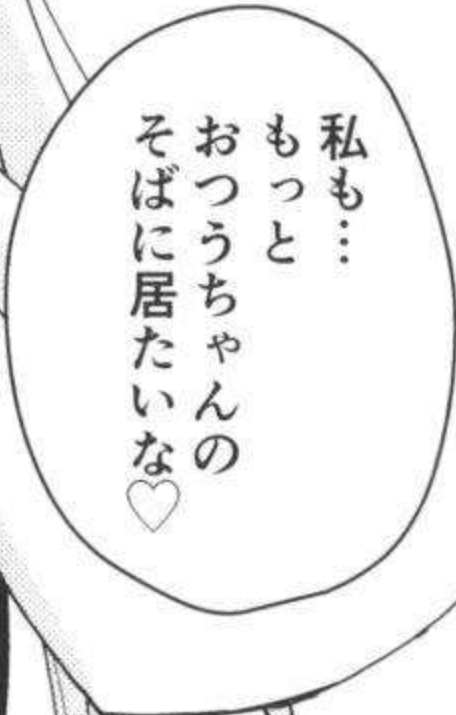 私も…
もっと
おつうちゃんの
そばに居たいな♡